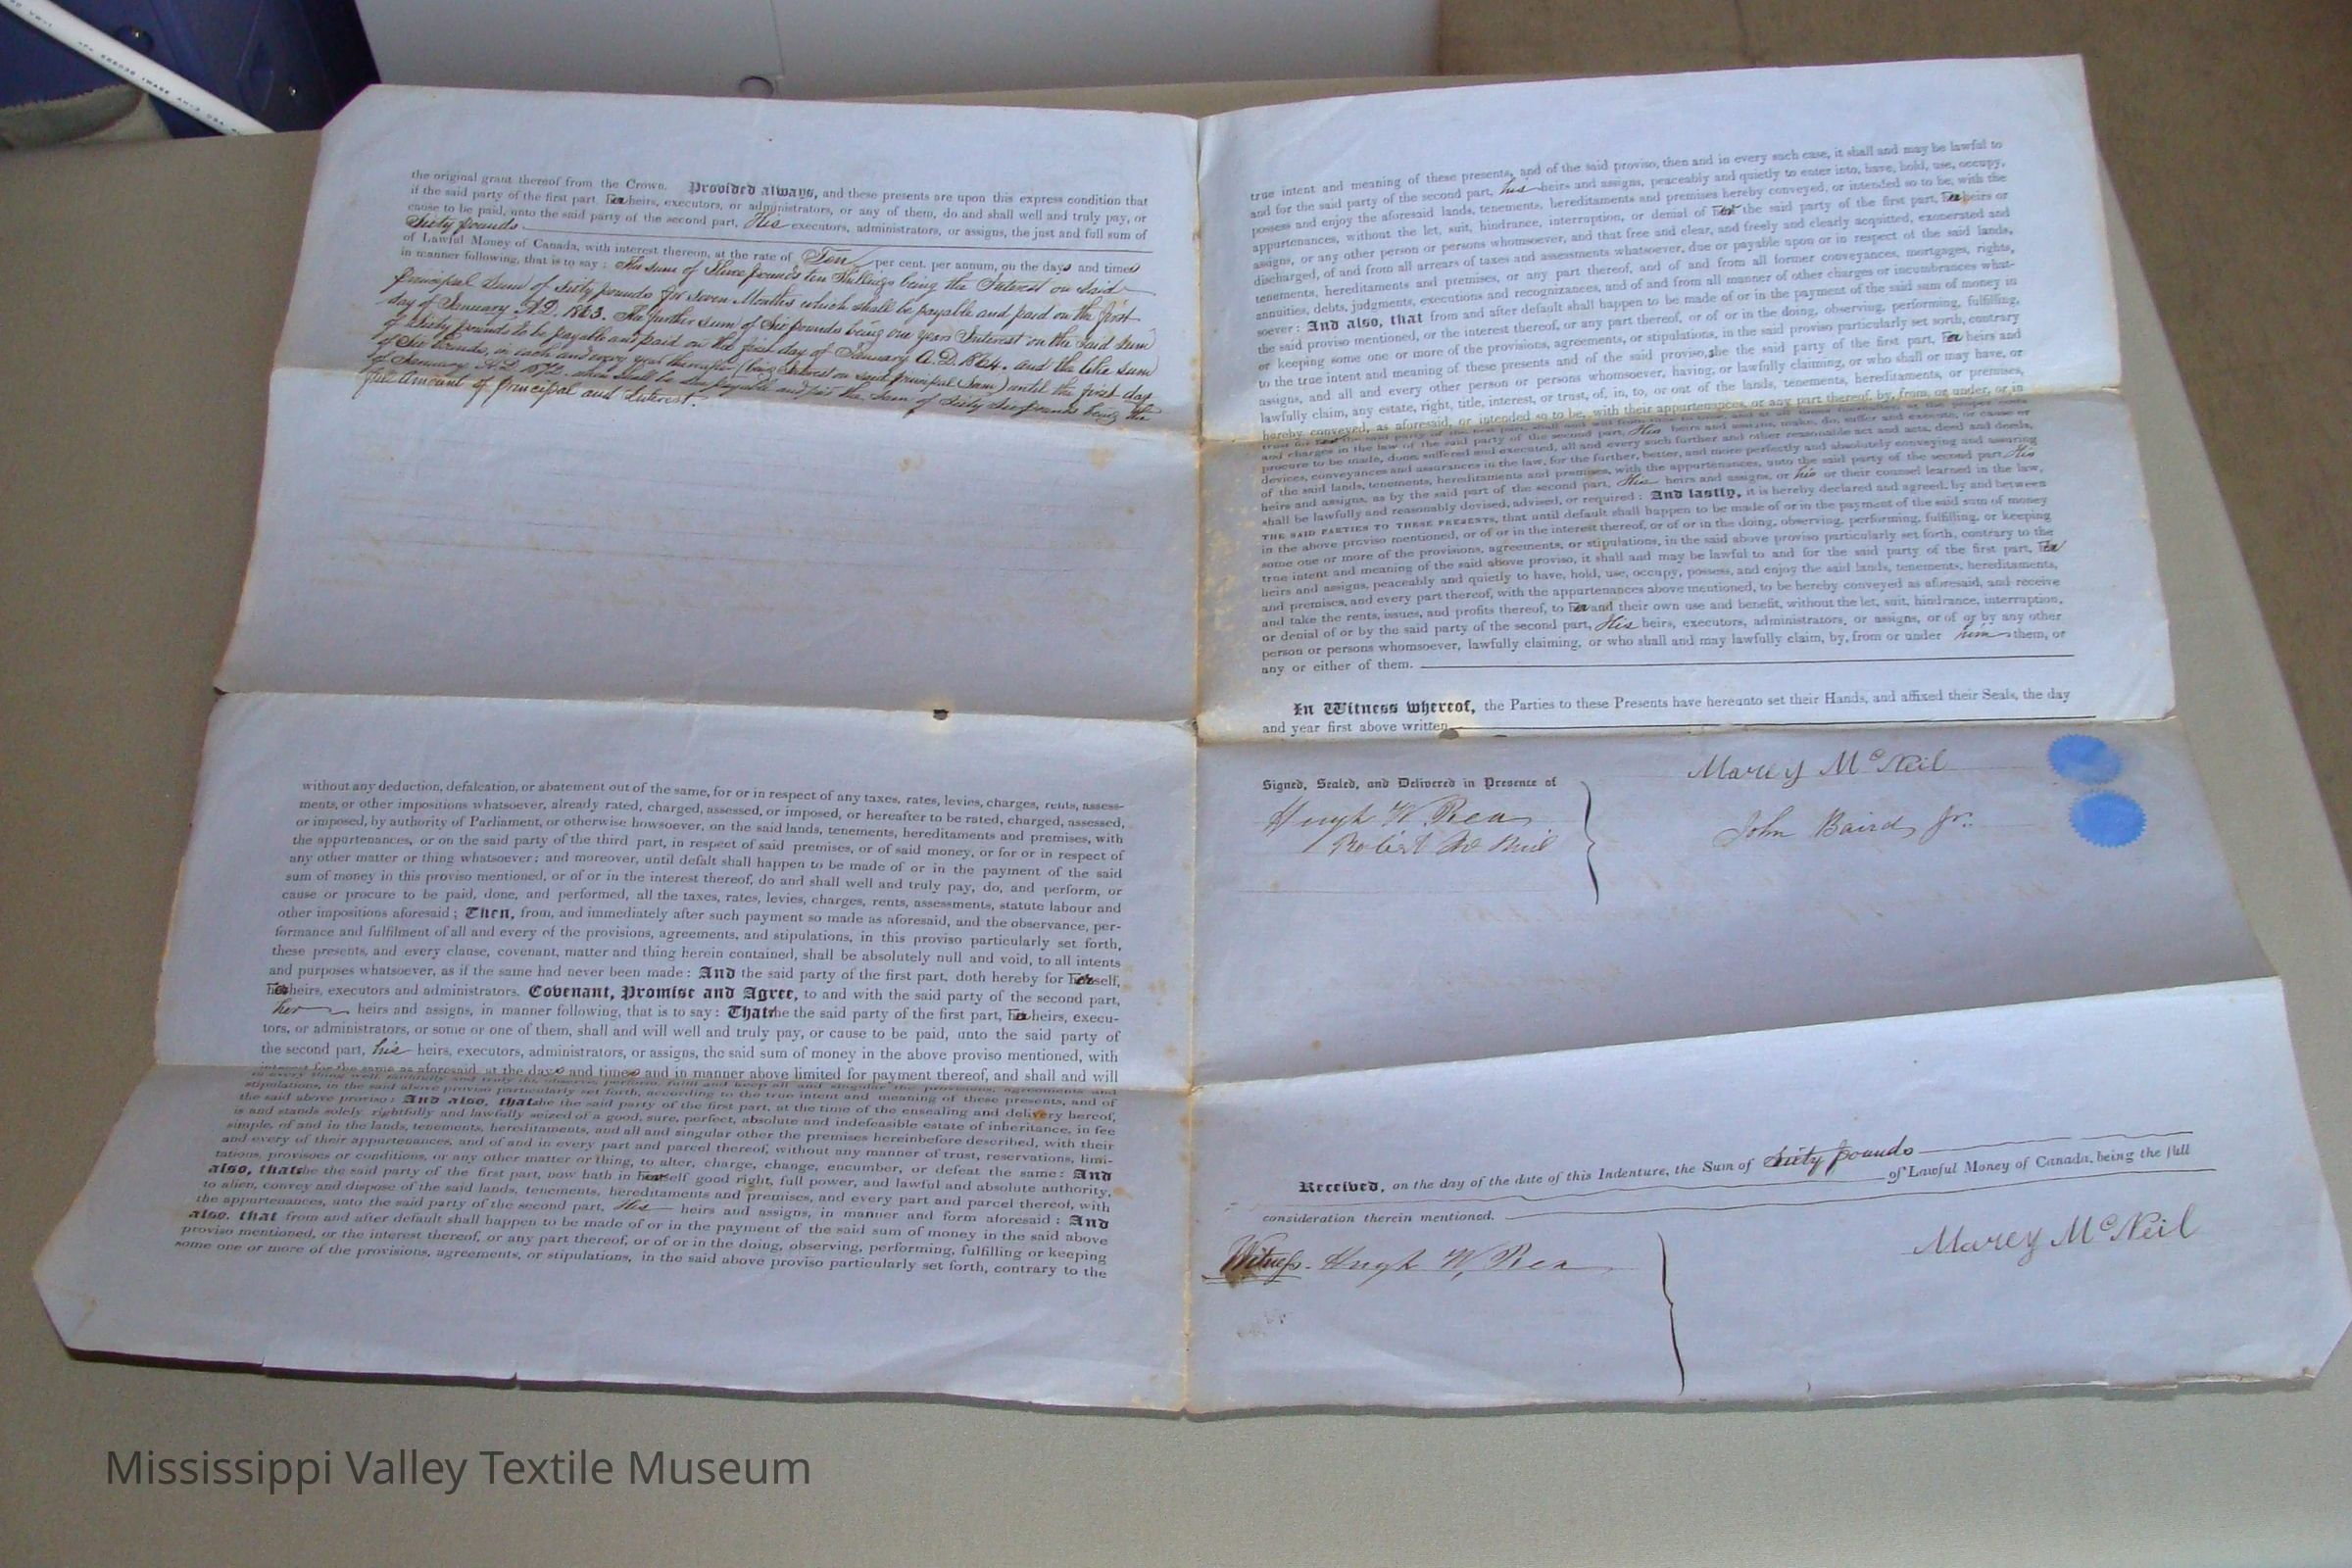 the original grant thereof from the Crown. Provided always, and these presents are upon this express condition that
if the said party of the first part, Her heirs, executors, or administrators, or any of them, do and shall well and truly pay, or
cause to be paid, unto the said party of the second part, His executors, administrators, or assigns, the just and full sum of
Sixty pounds
of Lawful Money of Canada, with interest thereon, at the rate of Ten per cent. per annum, on the days and times
in manner following, that is to say: The sum of Three pounds ten Shillings being the Interest on said
principal Sum of Sixty pounds for seven Months which shall be payable and paid on the first
day of January A.D. 1863. The further sum of Six pounds being one years Interest on the said sum
of Sixty pounds to be payable and paid on the first day of January A.D. 1864. and the like sum
of Six Pounds, in each and every year thereafter (being Interest on said principal Sum) until the first day
of January A.D. 1872. when shall be payable and the sum of Sixty Six pounds being the
full Amount of principal and Interest.
without any deduction, defalcation, or abatement out of the same, for or in respect of any taxes, rates, levies, charges, rents, assess-
ments, or other impositions whatsoever, already rated, charged, assessed, or imposed, or hereafter to be rated, charged, assessed,
or imposed, by authority of Parliament, or otherwise howsoever, on the said lands, tenements, hereditaments and premises, with
the appurtenances, or on the said party of the third part, in respect of said premises, or of said money, or for or in respect of
any other matter or thing whatsoever; and moreover, until defalt shall happen to be made of or in the payment of the said
sum of money in this proviso mentioned, or of or in the interest thereof, do and shall well and truly pay, do, and perform, or
cause or procure to be paid, done, and performed, all the taxes, rates, levies, charges, rents, assessments, statute labour and
other impositions aforesaid; Then, from, and immediately after such payment so made as aforesaid, and the observance, per-
formance and fulfilment of all and every of the provisions, agreements, and stipulations, in this proviso particularly set forth,
these presents, and every clause, covenant, matter and thing herein contained, shall be absolutely null and void, to all intents
and purposes whatsoever, as if the same had never been made: And the said party of the first part, doth hereby for Herself,
Her heirs, executors and administrators. Covenant, Promise and Agree, to and with the said party of the second part,
her heirs and assigns, in manner following, that is to say: That she the said party of the first part, Her heirs, execu-
tors, or administrators, or some or one of them, shall and will well and truly pay, or cause to be paid, unto the said party of
the second part, his heirs, executors, administrators, or assigns, the said sum of money in the above proviso mentioned, with
interest for the same as aforesaid, at the days and times and in manner above limited for payment thereof, and shall and will
in every thing well, faithfully and truly do, observe, perform, fulfil and keep all and singular the provisions, agreements and
stipulations, in the said above proviso particularly set forth, according to the true intent and meaning of these presents, and of
the said above proviso: And also, that she the said party of the first part, at the time of the ensealing and delivery hereof,
is and stands solely rightfully and lawfully seized of a good, sure, perfect, absolute and indefeasible estate of inheritance, in fee
simple, of and in the lands, tenements, hereditaments, and all and singular other the premises hereinbefore described, with their
and every of their appurtenances, and of and in every part and parcel thereof, without any manner of trust, reservations, limi-
tations, provisoes or conditions, or any other matter or thing, to alter, charge, change, encumber, or defeat the same: And
also, that she the said party of the first part, now hath in Herself good right, full power, and lawful and absolute authority,
to alien, convey and dispose of the said lands, tenements, hereditaments and premises, and every part and parcel thereof, with
the appurtenances, unto the said party of the second part, His heirs and assigns, in manner and form aforesaid: And
also, that from and after default shall happen to be made of or in the payment of the said sum of money in the said above
proviso mentioned, or the interest thereof, or any part thereof, or of or in the doing, observing, performing, fulfilling or keeping
some one or more of the provisions, agreements, or stipulations, in the said above proviso particularly set forth, contrary to the
true intent and meaning of these presents, and of the said proviso, then and in every such case, it shall and may be lawful to
and for the said party of the second part, his heirs and assigns, peaceably and quietly to enter into, have, hold, use, occupy,
possess and enjoy the aforesaid lands, tenements, hereditaments and premises hereby conveyed, or intended so to be, with the
appurtenances, without the let, suit, hindrance, interruption, or denial of Her the said party of the first part, Her heirs or
assigns, or any other person or persons whomsoever, and that free and clear, and freely and clearly acquitted, exonerated and
discharged, of and from all arrears of taxes and assessments whatsoever, due or payable upon or in respect of the said lands,
tenements, hereditaments and premises, or any part thereof, and of and from all former conveyances, mortgages, rights,
annuities, debts, judgments, executions and recognizances, and of and from all manner of other charges or incumbrances what-
soever: And also, that from and after default shall happen to be made of or in the payment of the said sum of money in
the said proviso mentioned, or the interest thereof, or any part thereof, or of or in the doing, observing, performing, fulfilling,
or keeping some one or more of the provisions, agreements, or stipulations, in the said proviso particularly set sorth, contrary
to the true intent and meaning of these presents and of the said proviso, she the said party of the first part, Her heirs and
assigns, and all and every other person or persons whomsoever, having, or lawfully claiming, or who shall or may have, or
lawfully claim, any estate, right, title, interest, or trust, of, in, to, or out of the lands, tenements, hereditaments, or premises,
hereby conveyed, as aforesaid, or intended so to be, with their appurtenances, or any part thereof, by, from, or under, or in
trust for her the said party of the first part, shall and will from time to time, and at all times thereafter, at the proper costs
and charges in the law of the said party of the second part, His heirs and assigns, make, do, suffer and execute, or cause or
procure to be made, done, suffered and executed, all and every such further and other reasonable act and acts, deed and deeds,
devices, conveyances and assurances in the law, for the further, better, and more perfectly and absolutely conveying and assuring
of the said lands, tenements, hereditaments and premises, with the appurtenances, unto the said party of the second part, His
heirs and assigns, as by the said part of the second part, His heirs and assigns, or his or their counsel learned in the law,
shall be lawfully and reasonably devised, advised, or required: And lastly, it is hereby declared and agreed, by and between
THE SAID PARTIES TO THESE PRESENTS, that until default shall happen to be made of or in the payment of the said sum of money
in the above proviso mentioned, or of or in the interest thereof, or of or in the doing, observing, performing, fulfilling, or keeping
some one or more of the provisions, agreements, or stipulations, in the said above proviso particularly set forth, contrary to the
true intent and meaning of the said above proviso, it shall and may be lawful to and for the said party of the first part, Her
heirs and assigns, peaceably and quietly to have, hold, use, occupy, possess, and enjoy the said lands, tenements, hereditaments,
and premises, and every part thereof, with the appurtenances above mentioned, to be hereby conveyed as aforesaid, and receive
and take the rents, issues, and profits thereof, to Her and their own use and benefit, without the let, suit, hindrance, interruption,
or denial of or by the said party of the second part, His heirs, executors, administrators, or assigns, or of or by any other
person or persons whomsoever, lawfully claiming, or who shall and may lawfully claim, by, from or under him them, or
any or either of them.
In Witness whereof, the Parties to these Presents have hereunto set their Hands, and affixed their Seals, the day
and year first above written
Signed, Sealed, and Delivered in Presence of
Marey McNeil
Hugh W. Rea
John Baird, Jr.
Robert McNeil
Received, on the day of the date of this Indenture, the Sum of Sixty pounds
of Lawful Money of Canada, being the full
consideration therein mentioned.
Marey McNeil
Witness. Hugh W. Rea
Mississippi Valley Textile Museum